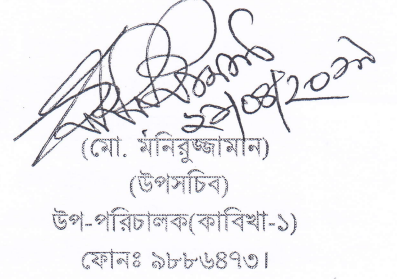 (মো. মনিরুজ্জামান)
(উপসচিব)
উপ-পরিচালক(কাবিখা-১)
ফোনঃ ৯৮৮৬৪৭৩।